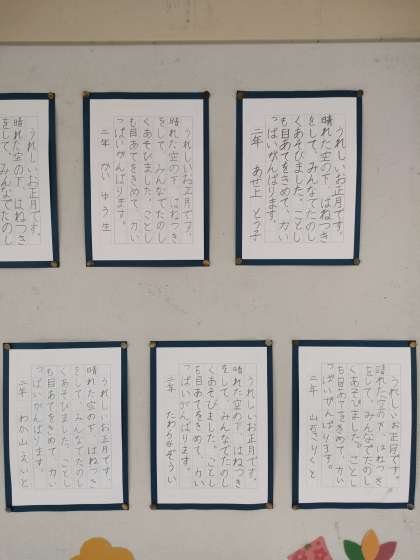 うれしいお正月です。
晴れた空の下、はねつき
をして、みんなでたのし
くあそびました。ことし
も目あてをきめて、力い
っぱいがんばります。
二年 あせ上 とう子
うれしいお正月です。
晴れた空の下、はねつき
をして、みんなでたのし
くあそびました。ことし
も目あてをきめて、力い
っぱいがんばります。
二年 かい ゆう生
うれしいお正月です。
晴れた空の下、はねつき
をして、みんなでたのし
うれしいお正月です。
晴れた空の下、はねつき
をして、みんなでたのし
くあそびました。ことし
も目あてをきめて、力い
っぱいがんばります。
二年
うれしいお正月です。
晴れた空の下、はねつき
をして、みんなでたのし
くあそびました。ことし
も目あてをきめて、力い
っぱいがんばります。
二年
うれしいお正月です。
晴れた空の下、はねつき
をして、みんなでたのし
くあそびました。ことし
も目あてをきめて、力い
っぱいがんばります。
二年 わか山 えいと